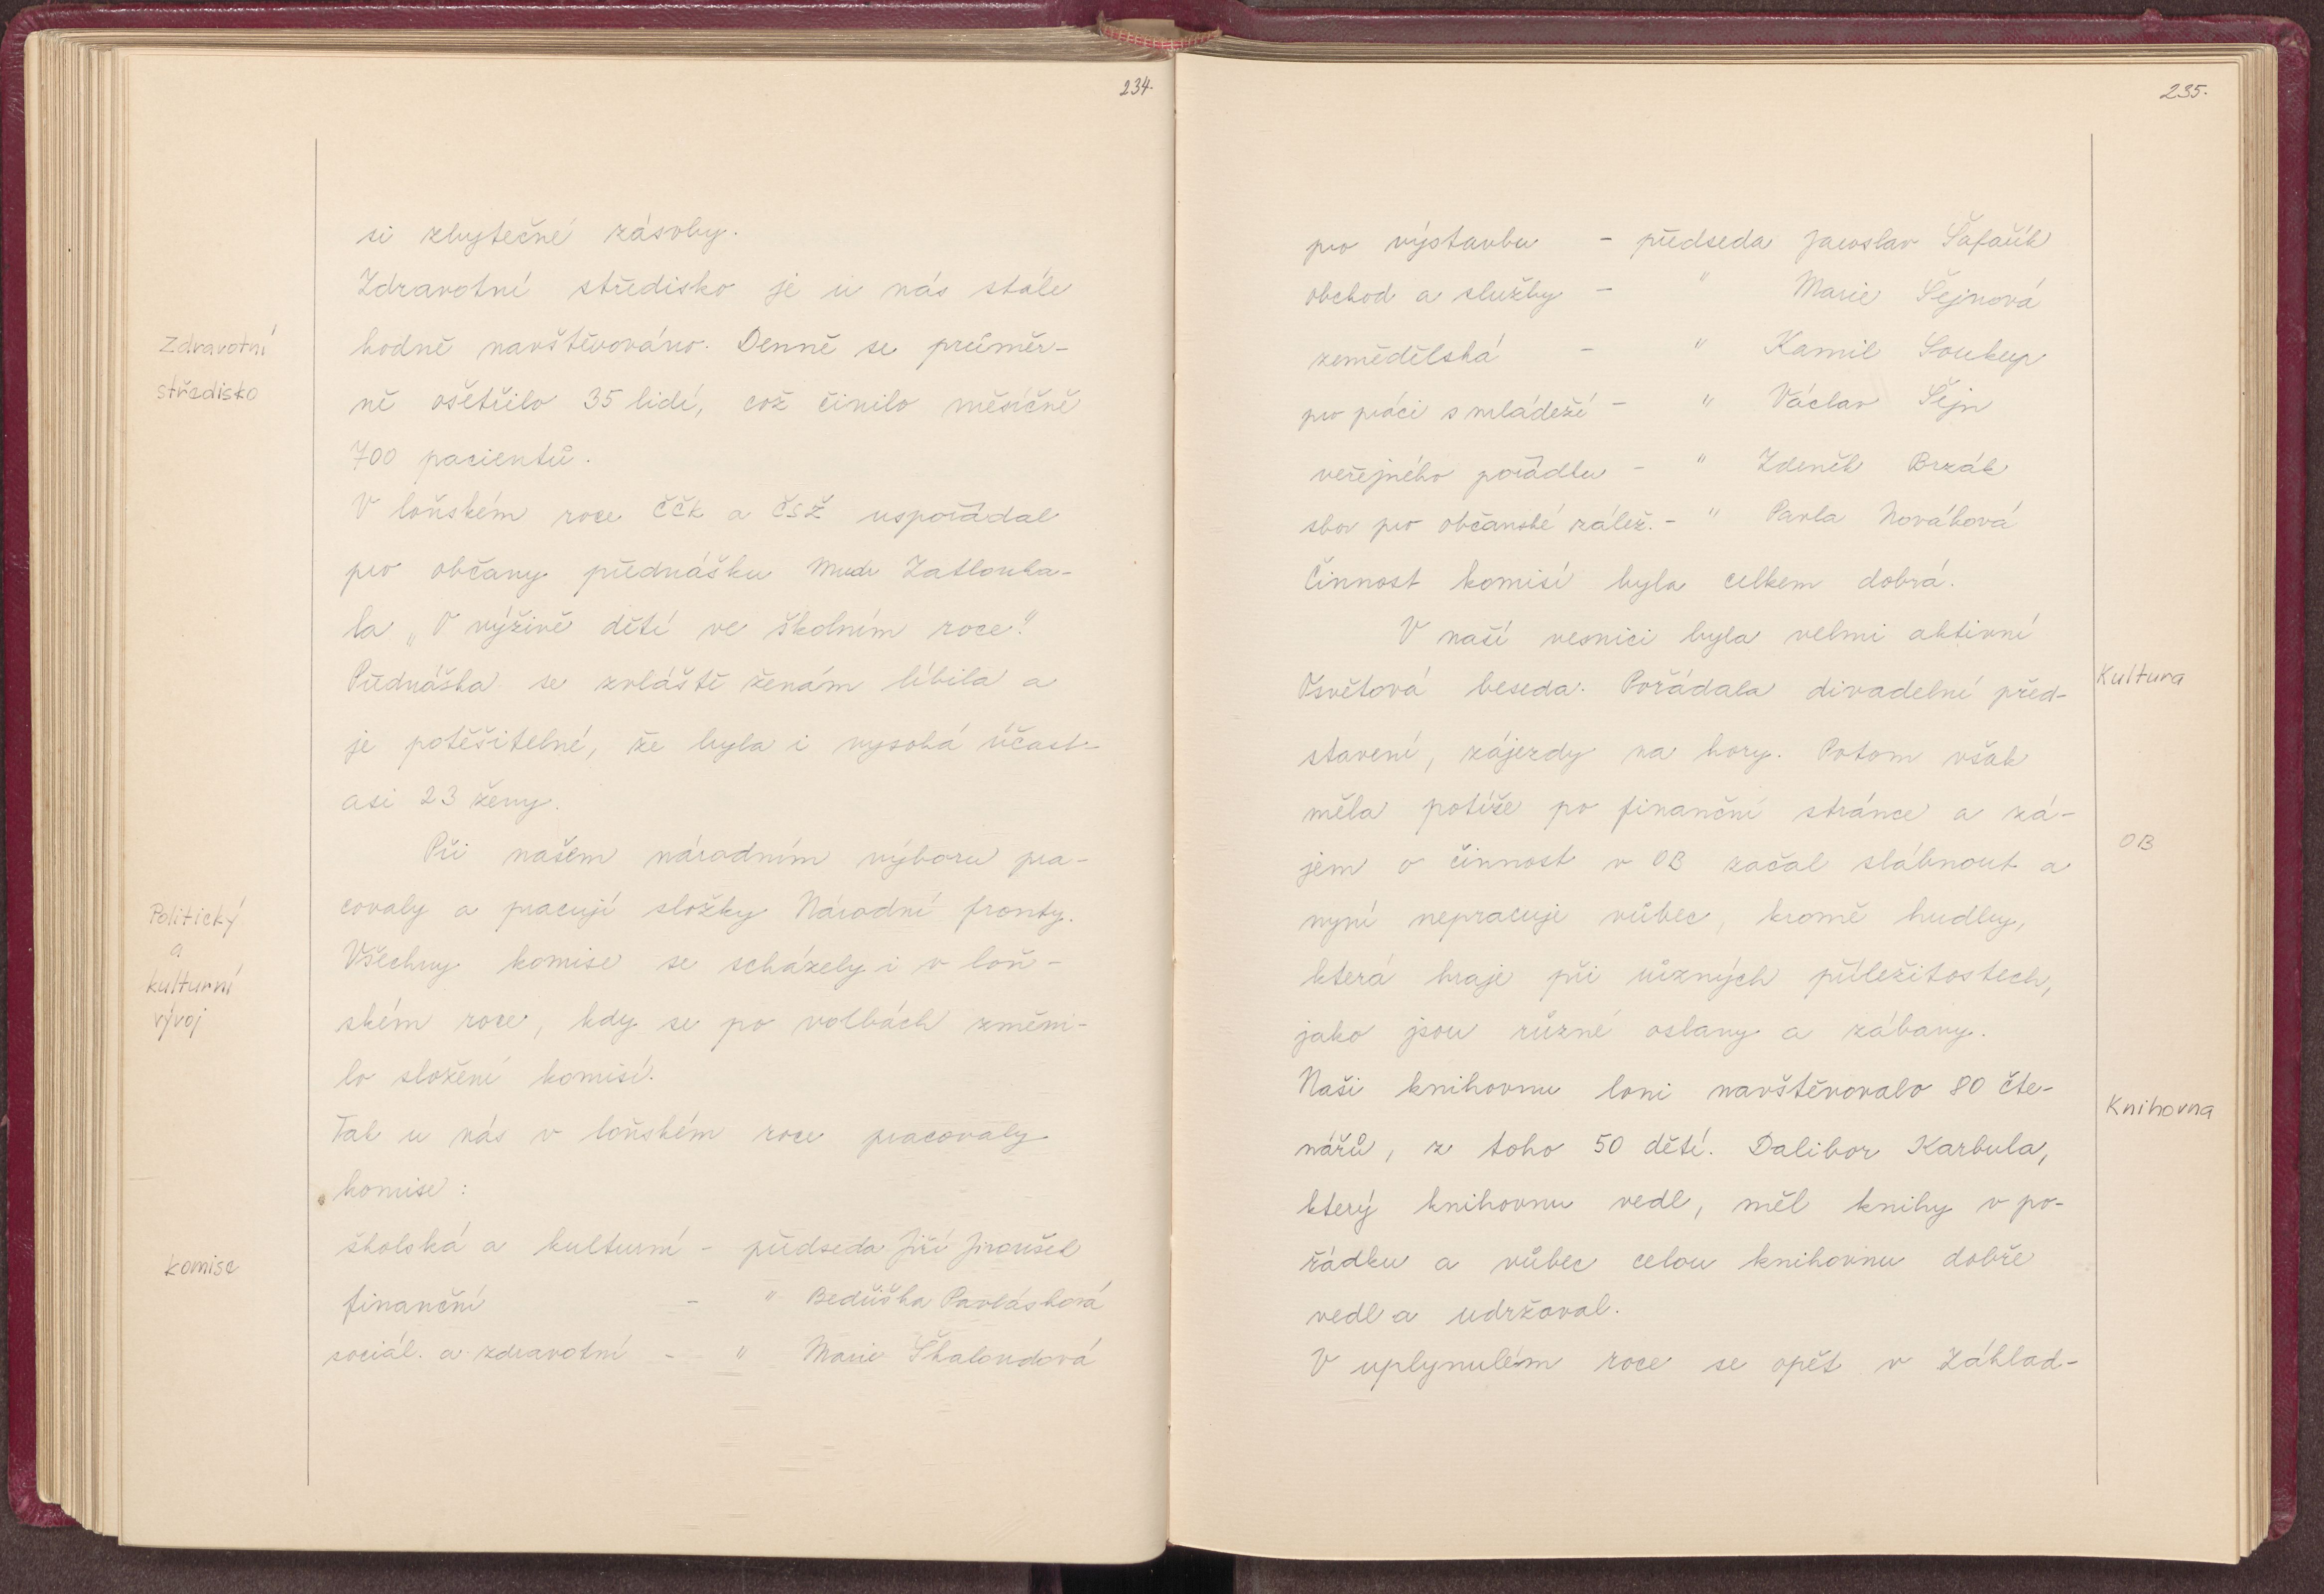 234.
si zbytečné zásoby.
Zdravotní středisko je u nás stále
Zdravotní
středisko
hodně navštěvováno. Denně se průměr-
ně ošetřilo 35 lidí, což činilo měsíčně
700 pacientů.
V loňském roce ČČK a ČSŽ uspořádal
pro občany přednášku Mudr Zatlouka-
la „O výživě dětí ve školním roce."
Přednáška se zvláště ženám líbila a
je potěšitelné, že byla i vysoká účast-
asi 23 ženy.
Při našem národním výboru pra-
Politický
a
kulturní
vývoj
covaly a pracují složky Národní fronty.
Všechny komise se scházely i v loň-
ském roce, kdy se po volbách změni-
lo složení komisí.
Tak u nás v loňském roce pracovaly
komise:
komise
školská a kulturní - předseda Jiří Jiroušek
finanční - " Bedřiška Pavlásková
sociál. a zdravotní - " Marie Škaloudová
235.
pro výstavbu - předseda Jaroslav Šafařík
obchod a služby - " Marie Šejnová
zemědělská - " Kamil Soukup
pro práci s mládeží - " Václav Šejn
veřejného pořádku - " Zdeněk Brzák
sbor pro občanské zálež. - " Pavla Nováková
Činnost komisí byla celkem dobrá.
V naší vesnici byla velmi aktivní
Kultura
Osvětová beseda. Pořádala divadelní před-
stavení, zájezdy na hory. Potom však
měla potíže po finanční stránce a zá-
OB
jem o činnost v OB začal slábnout a
nyní nepracuje vůbec, kromě hudby,
která hraje při různých příležitostech,
jako jsou různé oslavy a zábavy.
Naši knihovnu loni navštěvovalo 80 čte-
Knihovna
nářů, z toho 50 dětí. Dalibor Karbula,
který knihovnu vedl, měl knihy v po-
řádku a vůbec celou knihovnu dobře
vedl a udržoval.
V uplynulém roce se opět v Základ-